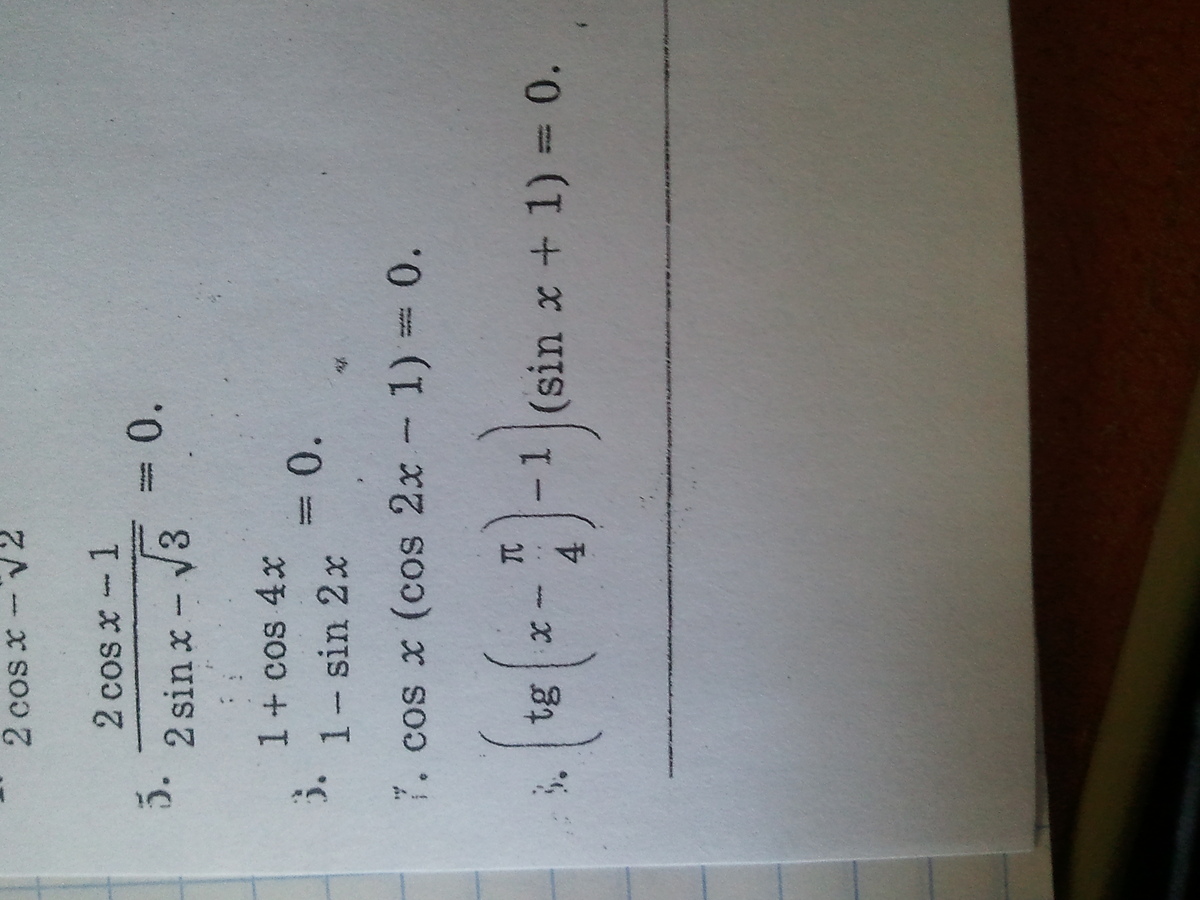 2 cos x − √2
2 cos x − 1
5. ――――― = 0.
2 sin x − √3
1 + cos 4x
= 0.
1 − sin 2x
7. cos x (cos 2x − 1) = 0.
(tg (x − π/4) − 1) (sin x + 1) = 0.